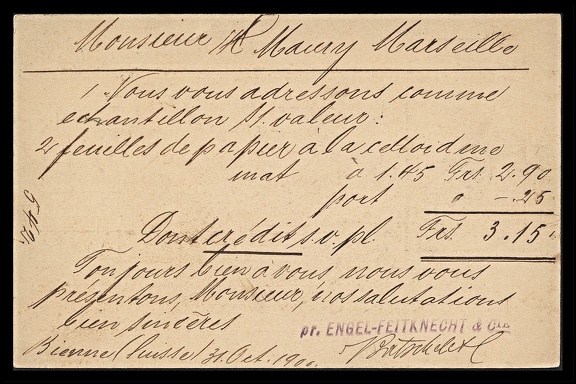 Monsieur H Maury Marseille
1. Nous vous adressons comme
echantillon st. valeur:
2 feuilles de papier à la celloidine
mat à 1.45 Frs. 2.90
port " -.25
Dont crédit s.v.pl. Frs. 3.15.
Toujours bien à vous nous vous
présentons, Monsieur, nos salutations
bien sincères
pr. ENGEL-FEITKNECHT & Cie
Bienne (Suisse) 31. Oct. 1900.
542.